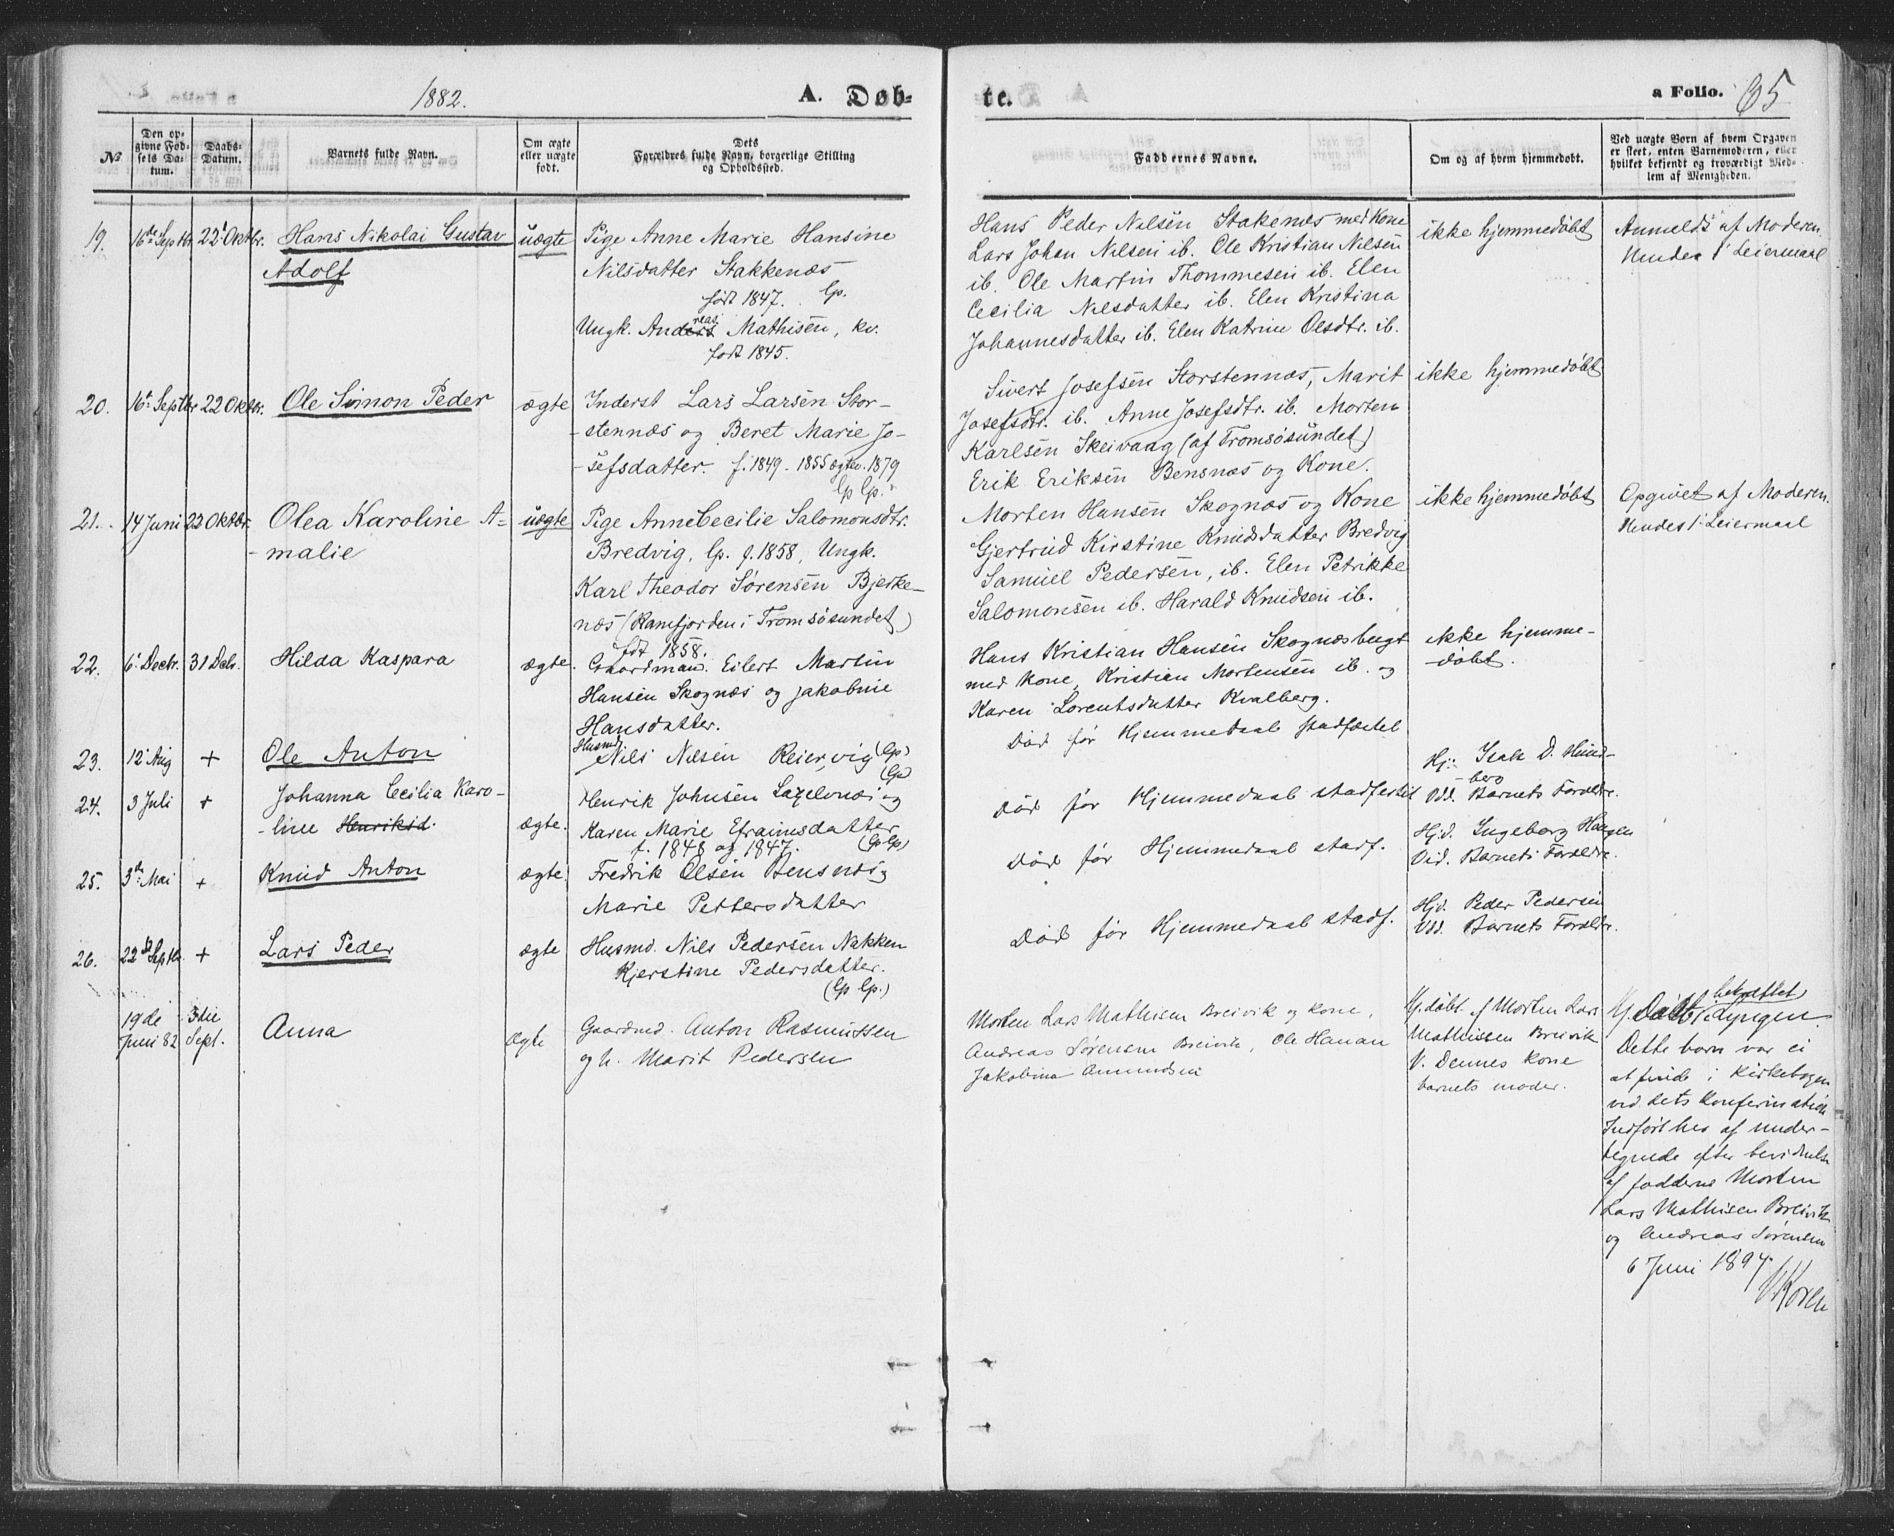 1882.
A. Døb-
te.
a Folio. 65
№
Den op-
givne Fød-
sels Da-
tum.
Daabs-
Datum.
Barnets fulde Navn.
Om ægte
eller uægte
født.
Dets
Forældres fulde Navn, borgerlige Stilling
og Opholdssted.
Faddernes Navne.
Om og af hvem hjemmedøbt.
Ved uægte Børn af hvem Opgaven
er skeet, enten Barnemoderen, eller
hvilket bekjendt og troværdigt Med-
lem af Menigheden.
19. 16de Septbr. 22 Oktbr. Hans Nikolai Gustav
Adolf
uægte
Pige Anne Marie Hansine
Nilsdatter Stakkenæs
født 1847. Lp.
Ungk. Andreas Mathisen, kv.
født 1845.
Hans Peder Nilsen Stakenæs med Kone
Lars Johan Nilsen ib. Ole Kristian Nilsen
ib. Ole Martin Thommesen ib. Elen
Cecilia Nilsdatter ib. Elen Kristina
Johannesdatter ib. Elen Katrine Olsdtr. ib.
ikke hjemmedøbt
Anmeldt af Moderen.
Hendes 1' Leiermaal
20. 16de Septbr 22 Oktbr. Ole Simon Peder
ægte
Inderst Lars Larsen Stor-
-stennæs og Beret Marie Jo-
-sefsdatter. f. 1849 - 1855 ægtev. 1879
Lp Lp.
Sivert Josefsen Storstennæs, Marit
Josefsdtr. ib. Anne Josefsdtr. ib. Morten
Karlsen Skeivaag (af Tromsøsundet)
Erik Eriksen Bensnæs og Kone.
ikke hjemmedøbt
21. 14 Juni 22 Oktbr. Olea Karoline A-
-malie
uægte
Pige Anne Cecilie Salomonsdtr.
Bredvig, Lp. f. 1858, Ungk.
Karl Theodor Sørensen Bjerke-
næs (Ramfjorden i Tromsøsundet)
født 1858.
Morten Hansen Skognæs og Kone
Gjertrud Kirstine Knudsdatter Bredvig
Samuel Pedersen, ib. Elen Petrikke
Salomonsen ib. Harald Knudsen ib.
ikke hjemmedøbt
Opgivet af Moderen.
Hendes 1' Leiermaal
22. 6' Decbr. 31 Dcbr. Hilda Kaspara
ægte.
Gaardman. Eilert Martin
Hansen Skognæs og Jakobine
Hansdatter.
Hans Kristian Hansen Skognæsbugt
med Kone, Kristian Mortensen ib. og
Karen Lorentsdatter Kvalberg.
ikke hjemme-
-døbt.
23. 12' Aug + Ole Anton
Husmd.
Nils Nilsen Reiervig (Lp)
(Lp)
Død før Hjemmedaab stadfæstet
Hj: Isak D. Hund-
-berg
Vdd. Barnets Forældre.
24. 3 Juli + Johanna Cecilia Karo-
-line Henriksd.
ægte.
Henrik Johnsen og
Karen Marie Efraimsdatter
f. 1848 og 1847. (Lp Lp)
Død før Hjemmedaab stadfestet
Hjd. Ingeborg Haagen
Vid. Barnets Forældre.
25. 3die Mai + Knud Anton
ægte
Fredrik Olsen Bensnæs og
Marie Pettersdatter
Død før Hjemmedaab stadf.
Hjd. Peder Pedersen
Vdd. Barnets Forældre.
26. 22de Septbr + Lars Peder
ægte
Husmd. Nils Pedersen Nakken
Kjerstine Pedersdatter.
(Lp Lp.)
Død før Hjemmedaab stadf.
19de
Juni 82
3die
Sept.
Anna
Ægte
Gaardmd. Anton Rasmussen
og h. Marit Pedersen
Morten Lars Mathisen Breivik og kone,
Andreas Sørensen Breivik, Ole Hanan
Jakobina Amundsen
Hj.døbt af Morten Lars
Mathissen Breivik
V. Dennes kone
barnets moder.
bekræftet
Hj. Døbt i Lyngen.
Dette barn var ei
at finde i Kirkebogen
ved dets Konfirmation
Indført her af under-
tegnede efter bevidnelse
af fadderne Morten
Lars Mathisen Breivik
og Andreas Sørensen
6 Juni 1897.
Koren